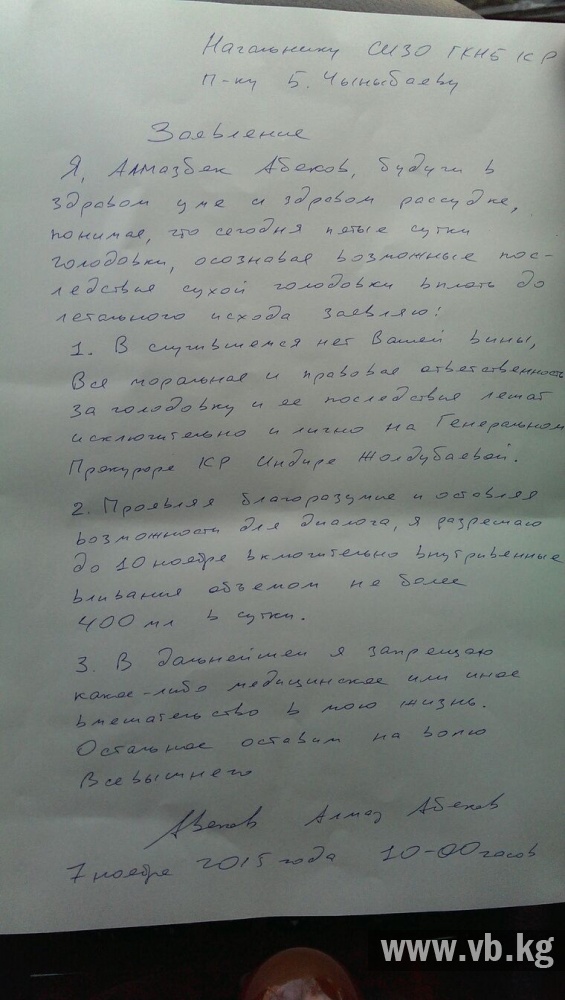 Начальнику СИЗО ГКНБ КР
П-ку Б. Чыныбаеву
Заявление
Я, Алмазбек Абеков, будучи в
здравом уме и здравом рассудке,
понимая, что сегодня пятые сутки
голодовки, осозновая возможные пос-
ледствия сухой голодовки вплоть до
летального исхода заявляю:
1. В случившемся нет Вашей вины,
Вся моральная и правовая ответственность
за голодовку и ее последствия лежат
исключительно и лично на Генеральном
Прокуроре КР Индире Жолдубаевой.
2. Проявляя благоразумие и оставляя
возможности для диалога, я разрешаю
до 10 ноября включительно внутривенные
вливания объемом не более
400 мл в сутки.
3. В дальнейшем я запрещаю
какое-либо медицинское или иное
вмешательство в мою жизнь.
Остальное оставим на волю
Всевышнего
Абеков Алмаз Абеков
7 ноября 2015 года 10-00 часов
www.vb.kg